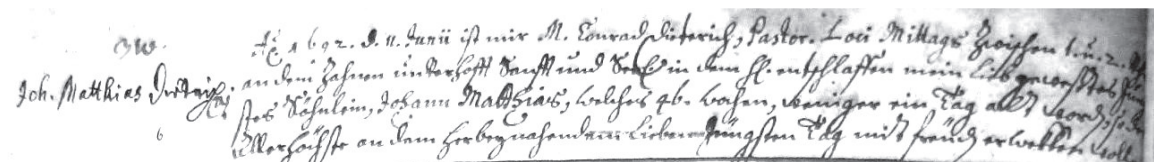 Joh. Matthias Dietrich
Ao. 1692. d. 11. Junii ist mir M. Conrad Dieterich, Pastor. Loci Mittags zwischen 1. u. 2.
an dem Zahnen unverhofft Sanfft und Seel. in dem H. entschlaffen mein lieb jüng
stes Söhnlein, Johann Matthias, welches 46. wochen, weniger ein Tag alt
Allerhöchste an dem herbeynahenden lieben Jüngsten Tag mit freud erwekken